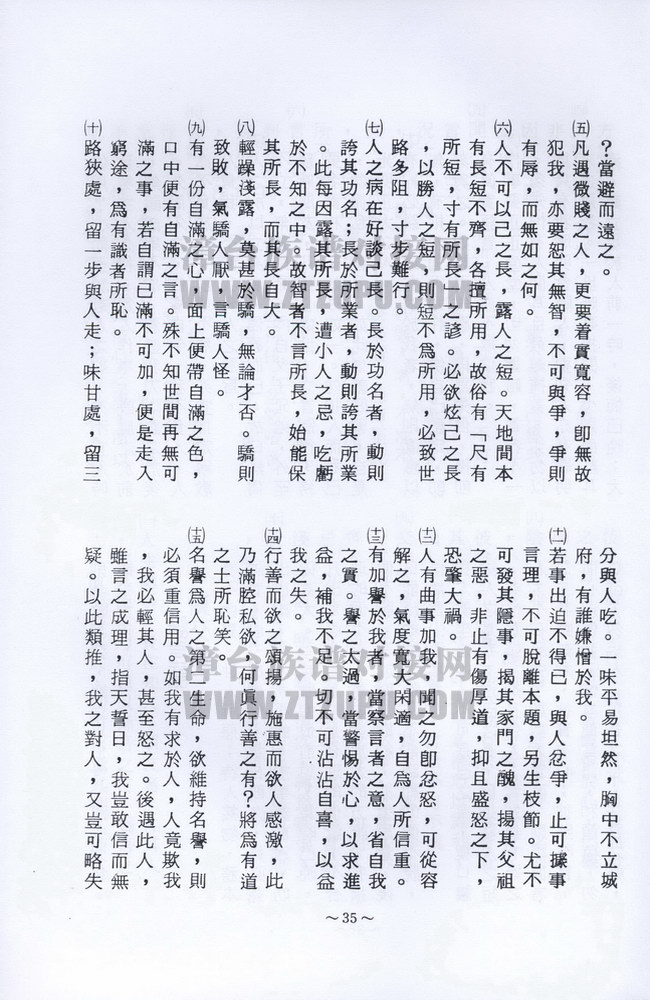 ？當避而遠之。
㈤凡遇微賤之人，更要着實寬容，卽無故
犯我，亦要恕其無智，不可與爭，爭則
有辱，而無如之何。
㈥人不可以己之長，露人之短。天地間本
有長短不齊，各擅所用，故俗有「尺有
所短，寸有所長」之諺。必欲炫己之長
，以勝人之短，則短不爲所用，必致世
路多阻，寸步難行。
㈦人之病在好談己長。長於功名者，動則
誇其功名；長於所業者，動則誇其所業
。此每因露其所長，遭小人之忌，吃虧
於不知之中。故智者不言所長，始能保
其所長，而其長自大。
㈧輕躁淺露，莫甚於驕，無論才否。驕則
致敗，氣驕人厭，言驕人怪。
㈨有一份自滿之心，面上便帶自滿之色，
口中便有自滿之言。殊不知世間再無可
滿之事，若自謂已滿不可加，便是走入
窮途，爲有識者所恥。
㈩路狹處，留一步與人走；味甘處，留三
分與人吃。一味平易坦然，胸中不立城
府，有誰嫌憎於我。
(十一)若事出迫不得已，與人忿爭，止可據事
言理，不可脫離本題，另生枝節。尤不
可發其隱事，揭其家門之醜，揚其父祖
之惡，非止有傷厚道，抑且盛怒之下，
恐肇大禍。
(十二)人有曲事加我，聞之勿卽忿怒，可從容
解之，氣度寬大閑適，自爲人所信重。
(十三)有加譽於我者，當察言者之意，省自我
之實。譽之太過，當警惕於心，以求進
益，補我不足。切不可沾沾自喜，以益
我之失。
(十四)行善而欲之頌揚，施惠而欲人感激，此
乃滿腔私欲，何眞行善之有？將爲有道
之士所恥笑。
(十五)名譽爲人之第二生命，欲維持名譽，則
必須重信用。如我有求於人，人竟欺我
，我必輕其人，甚至怒之。後遇此人，
雖言之成理，指天誓日，我豈敢信而無
疑。以此類推，我之對人，又豈可略失
～35～
漳台族谱对接网
WWW.ZTZUPU.COM
漳台族谱对接网
WWW.ZTZUPU.COM